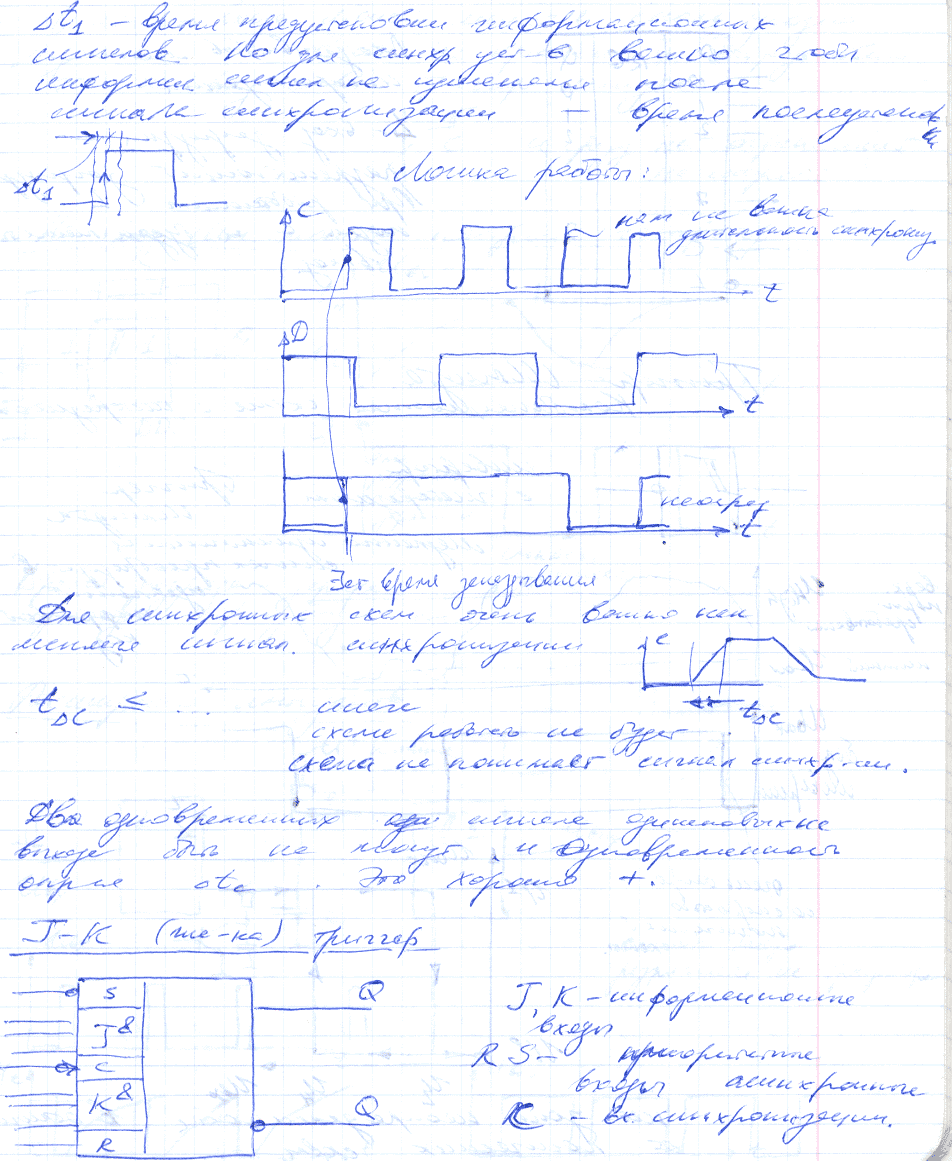 Δt₁ – время предустановки информационных
сигналов. Но для синхр уст-в важно чтобы
информ сигнал не изменялся после
сигнала синхронизации – время послеустановки
Δt₁
Логика работы:
C
нам не важна
длительность синхрониз.
t
D
t
неопред
t
Зет время запаздывания
Для синхронных схем очень важно как
меняется сигнал синхронизации
C
t_DC
t_DC ≤ ... иначе
схема работать не будет
схема не понимает сигнал синхр-ии.
Два одновременных сигнала одинаковых на
выходе быть не могут и одновременность
Δt_c. Это хорошо +.
J-K (же-ка) триггер
S
J &
C
K &
R
Q
Q
J, K – информационные
входы
R S – приоритетные
входы асинхронные
C – вх. синхронизации.